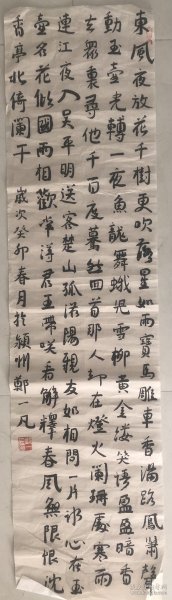 東風夜放花千樹更吹落星如雨寶馬雕車香滿路鳳簫聲
動玉壺光轉一夜魚龍舞蛾兒雪柳黃金縷笑語盈盈暗香
去眾裏尋他千百度驀然回首那人卻在燈火闌珊處寒雨
連江夜入吳平明送客楚山孤洛陽親友如相問一片冰心在玉
壺名花傾國兩相歡常得君王帶笑看解釋春風無限恨沈
香亭北倚闌干 歲次癸卯春月於潁州鄭一凡